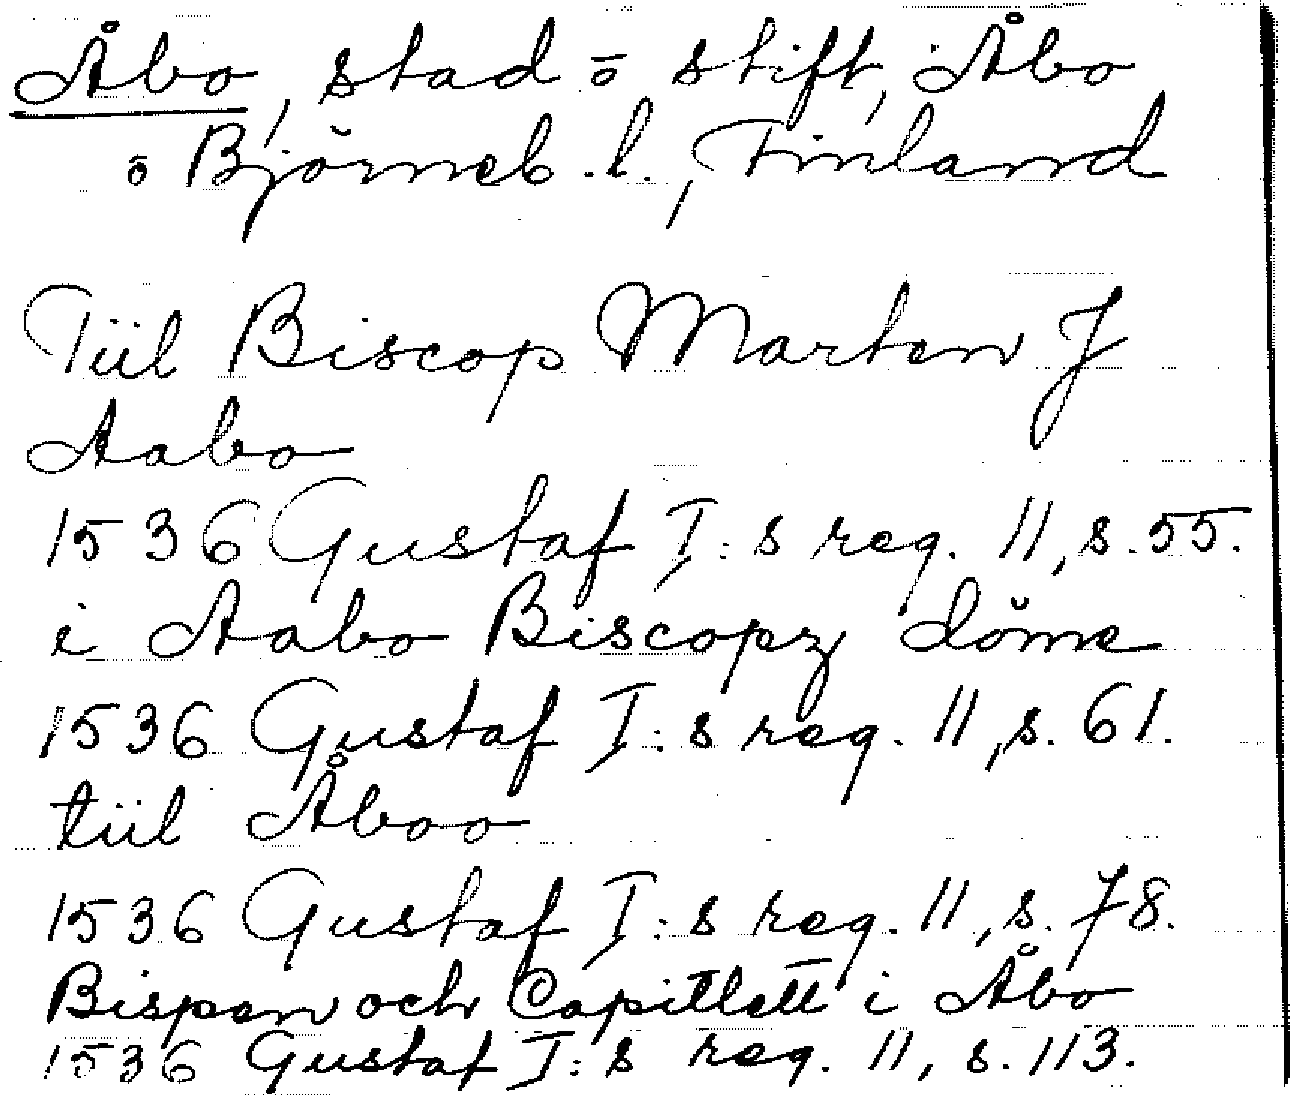 Åbo, stad o stift, Åbo
o Björneb. l., Finland
Tiil Biscop Marten J
Aabo
1536 Gustaf I:s reg. 11, s. 55.
i Aabo Biscopz döme
1536 Gustaf I:s reg. 11, s. 61.
tiil Åboo
1536 Gustaf I:s reg. 11, s. 78.
Bispen och Capitlett i Åbo
1536 Gustaf I:s reg. 11, s. 113.